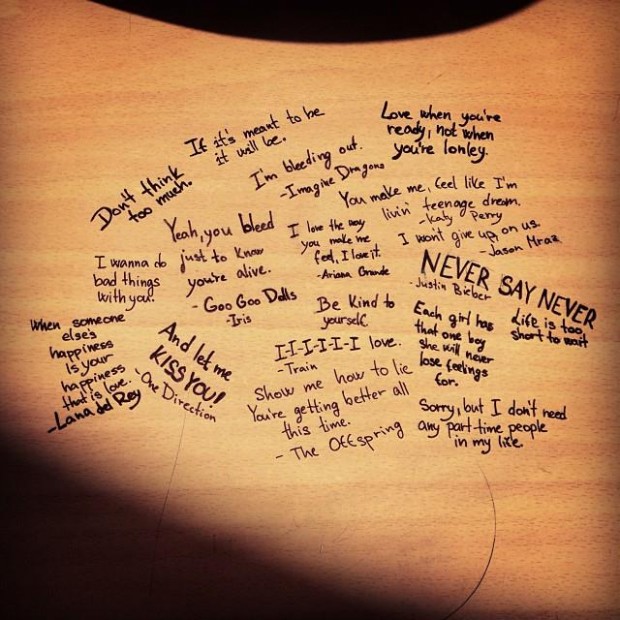 If it's meant to be
it will be.
Love when you're
ready, not when
you're lonley.
Don't think
too much.
I'm bleeding out.
-Imagine Dragons
You make me, feel like I'm
livin' teenage dream.
-Katy Perry
Yeah, you bleed
just to know
you're alive.
- Goo Goo Dolls
-Iris
I love the way
you make me
feel, I love it.
-Ariana Grande
I won't give up, on us.
- Jason Mraz
I wanna do
bad things
with you.
NEVER SAY NEVER
- Justin Bieber
Be Kind to
yourself.
When someone
else's
happiness
Is your
happiness
that is love.
-Lana del Rey
And let me
KISS YOU!
- One Direction
I-I-I-I-I-I love.
-Train
Each girl has
that one boy
she will never
lose feelings
for.
Life is too
short to wait
Show me how to lie
You're getting better all
this time.
- The Offspring
Sorry, but I don't need
any part-time people
in my life.